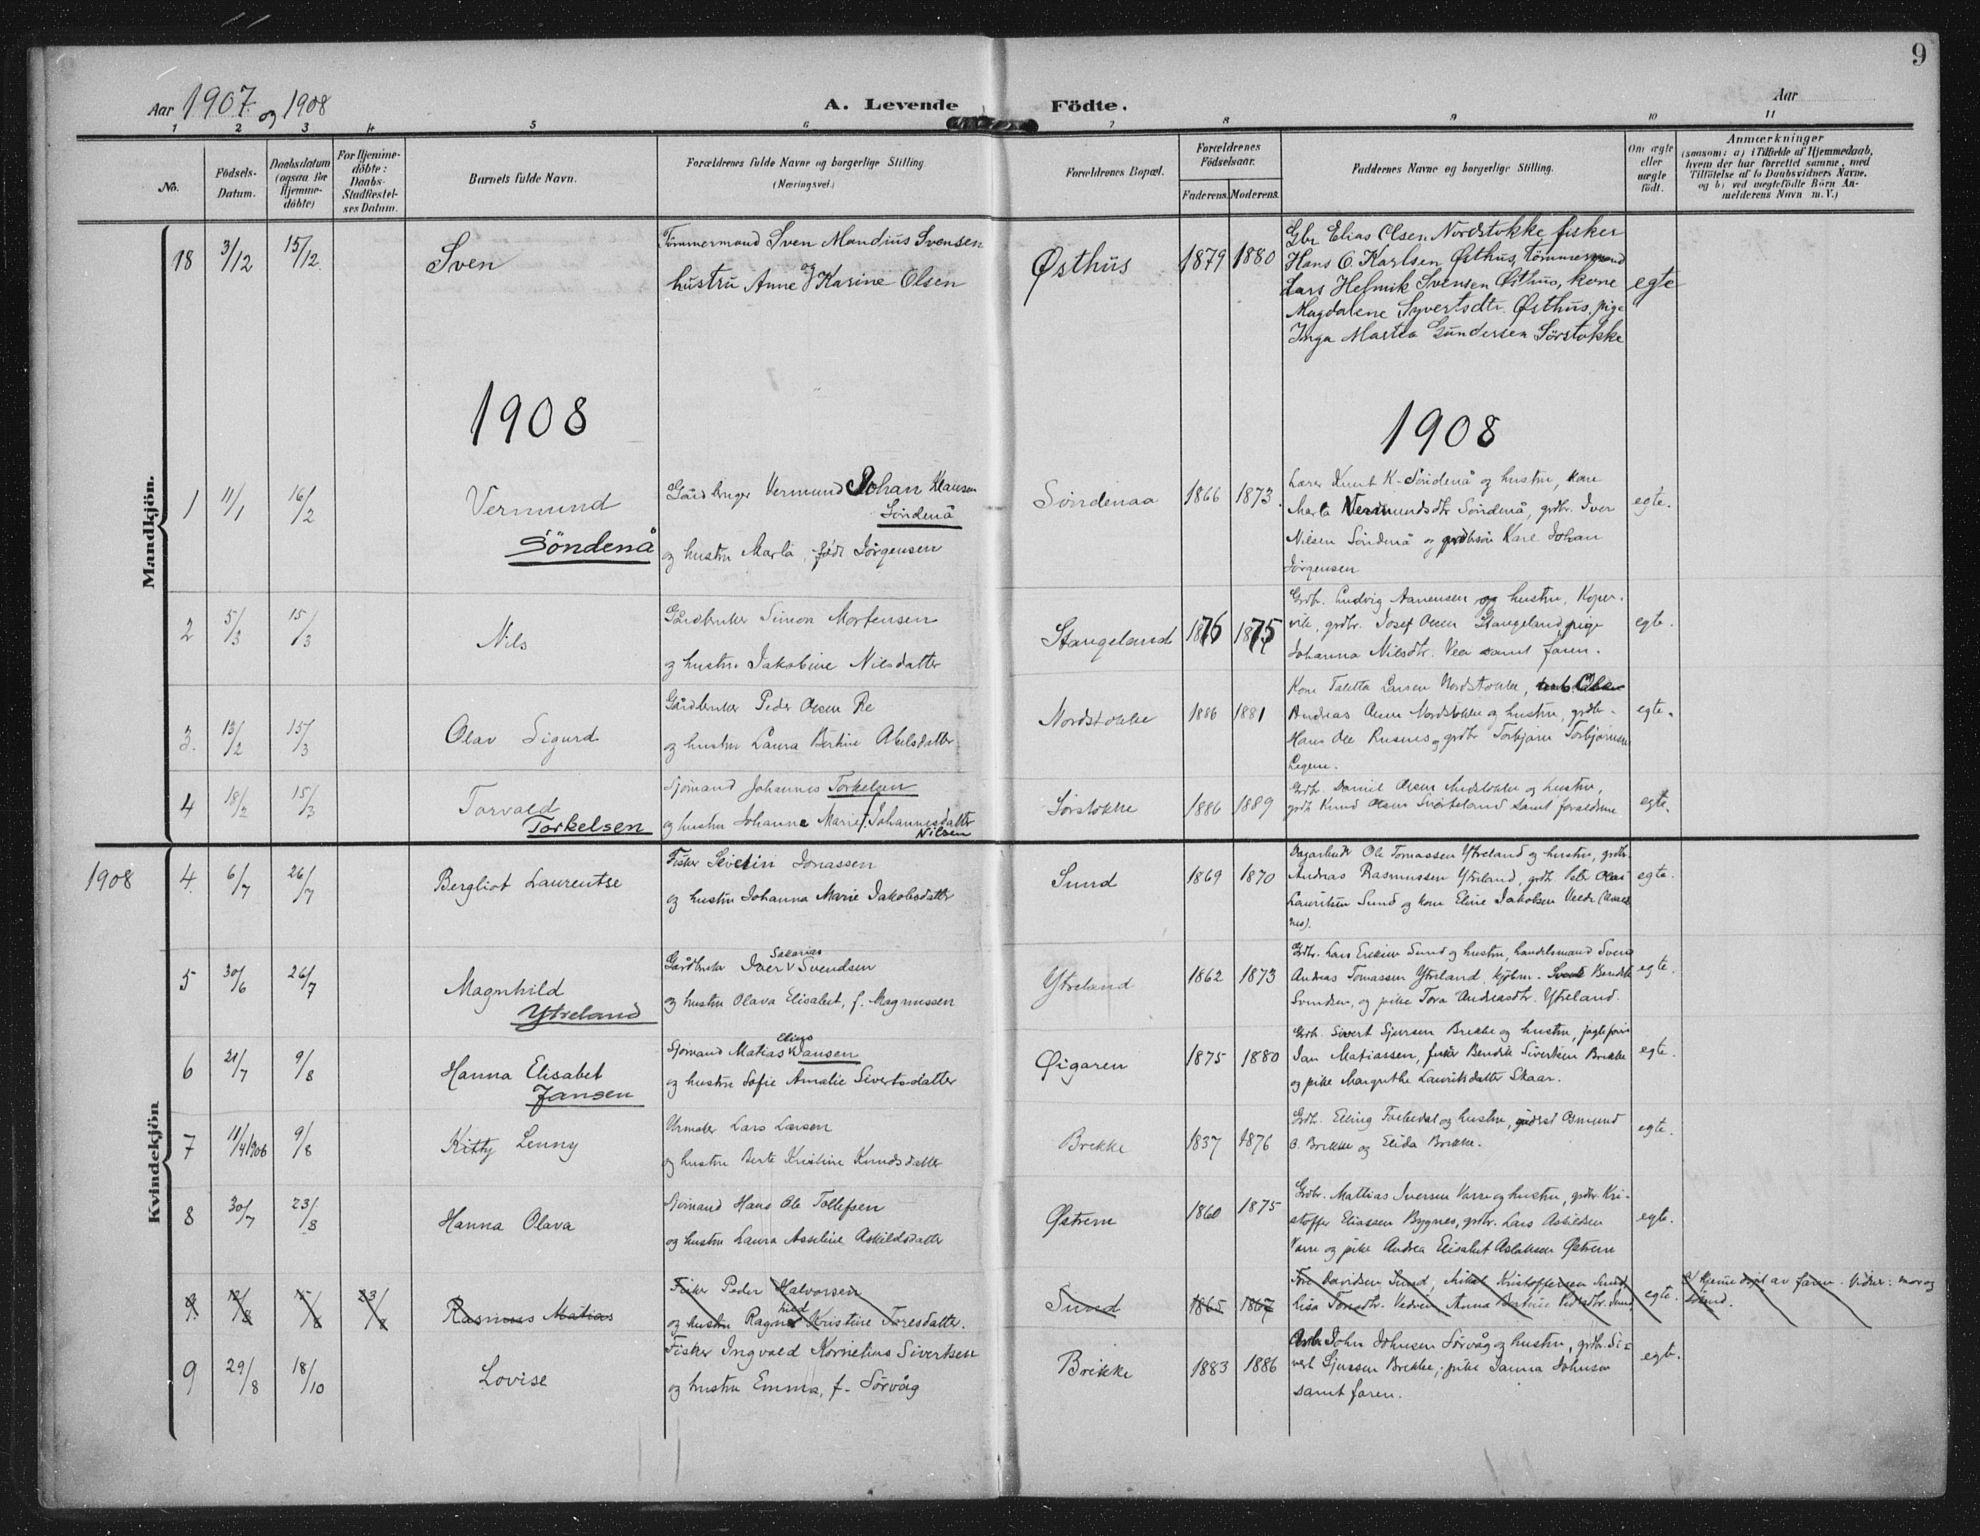 9
Aar 1907 og 1908
A. Levende Födte.
Aar
1 2 3 4 5 6 7 8 9 10 11
No.
Födsels-
Datum.
Daabsdatum
(ogsaa for
Hjemme-
döbte)
For Hjemme-
döbte:
Daabs-
Stadfæstel-
ses Datum.
Barnets fulde Navn.
Forældrenes fulde Navne og borgerlige Stilling
(Næringsvei.)
Forældrenes Bopæl.
Forældrenes
Födselsaar.
Faderens. Moderens.
Faddernes Navne og borgerlige Stilling.
Om ægte
eller
uægte
födt.
Anmærkninger
(saasom: a) i Tilfælde af Hjemmedaab,
hvem der har forrettet samme, med
Tilföielse af to Daabsvidners Navne.
og b) ved uægtefödte Börn An-
melderens Navn m. V.)
Mandkjön.
18 3/12 15/12 Sven
Tømmermand Sven Mandius Svensen
og
hustru Anne Karine Olsen
Østhus 1879 1880
Gbr Elias Olsen Nordstokke fisker
Hans O. Karlsen Østhus, tømmermand
Lars Helmik Svensen Østhus, kone
Magdalene Syvertsdtr. Østhus, pige
Inga Martea Gundersen Sørstokke
egte
1908
1908
1 11/1 16/2 Vermund
Söndenå
Gårdbruger Vermund Johan Klausen
Söndenå
og hustru Marta, født Jörgensen
Söndenaa 1866 1873
Lærer Knut K. Söndenå og hustru, kone
Marta Vermundsdtr Söndenå, grdbr. Iver
Nilsen Söndenå og grdbrsön Karl Johan
Jörgensen
egte.
2 5/3 15/3 Nils
Gårdbruker Simon Mortensen
og hustru Jakobine Nilsdatter
Stangeland 1876 1875
Grdbr. Ludvig Aanensen og hustru, Koper-
vik, grdbr. Josef Olsen Stangeland, pige
Johanna Nilsdtr. Vea samt faren.
egte.
3. 13/2 15/3 Olav Sigurd
Gårdbruker Peder Olsen Re
og hustru Laura Bertine Akselsdatter
Nordstokke 1886 1881
Kone Taletta Larsen Nordstokke,
Andreas Olsen Nordstokke og hustru, grdbr.
Hans Ole Rusnes og grdbr Torbjørn Torbjørnsen
Liknes.
egte.
4 18/2 15/3 Torvald
Torkelsen
Sjömand Johannes Torkelsen
og hustru Johanne Marie f. Johannesdatter
Nilsen
Sörstokke 1886 1889
Grdbr. Daniel Olsen Nordstokke og hustru,
grdb Knud Olsen Snørteland samt forældrene
egte.
1908
Kvindekjön
4. 6/7 26/7 Bergliot Laurentse
Fisker Severin Jonassen
og hustru Johanna Marie Jakobsdatter
Sund 1869 1870
Dagarbeidr Ole Tomassen Ytreland og hustru, grdbr.
Andreas Rasmussen Ytreland, grdbr. Peter Olai
Lauritsen Sund og kone Eline Jakobsen
egte.
5 30/6 26/7 Magnhild
Ytreland
Sakarias
Gårdbruker Iver Svendsen
og hustru Olava Elisabet, f. Magnussen
Ytreland 1862 1873
Grdbr. Lars Eriksen Sund og hustru, handelsmand Svend
Andreas Tomassen Ytreland, kjøbm. Bendik
Svendsen, og pike Tora Andreasdtr. Ytreland.
egte.
6 21/7 9/8 Hanna Elisabet
Jansen
Elias
Sjömand Matias Jansen
og hustru Sofie Amalie Sivertsdatter
Øigaren 1875 1880
Grdb. Sivert Sjursen Brekke og hustru,
Jan Matiassen, fisker Bendik Sivertsen Brekke
og pike Margrethe Lauritsdatter Skaar.
egte.
7 11/4 1906 9/8 Kitty Lenny
Urmaker Lars Larsen
og hustru Berte Kristine Knudsdatter
Brekke 1837 1876
Grdb. Elling Farkedal og hustru, Osmund
O. Brekke og Elida Brekke.
egte.
8 30/7 23/8 Hanna Olava
Sjömand Hans Ole Tollefsen
og hustru Laura Asseline Askildsdatter
Østrem 1860 1875
Grdbr. Mattias Iversen Varre og hustru, grdbr. Kri-
stoffer Eliassen Bygnes, grdbr. Lars Askildsen
Varre og pike Andrea Elisabet Aslaksen Østrem
egte.
9. 12/8 23/8 Rasmus Matias
Fisker Peder Halvorsen
hild
og hustru Ragna Kristine Toresdatter.
Sund 1865 1867
Tore Davidsen Sund, Mikal Kristoffersen Sund,
Lisa Toresdtr. Vedøen Anna Bertine Pedersdtr. Sund
egte.
a/ hjemmedöpt av faren. Vidner: mor og
9 29/8 18/10 Lovise
Fisker Ingvald Kornelius Sivertsen
og hustru Emma, f. Sørvåg
Brekke 1883 1886
John Johnsen Sörvåg og hustru, grdbr. Si-
vert Sjursen Brekke, pike Janna Johnsen
samt faren.
egte.